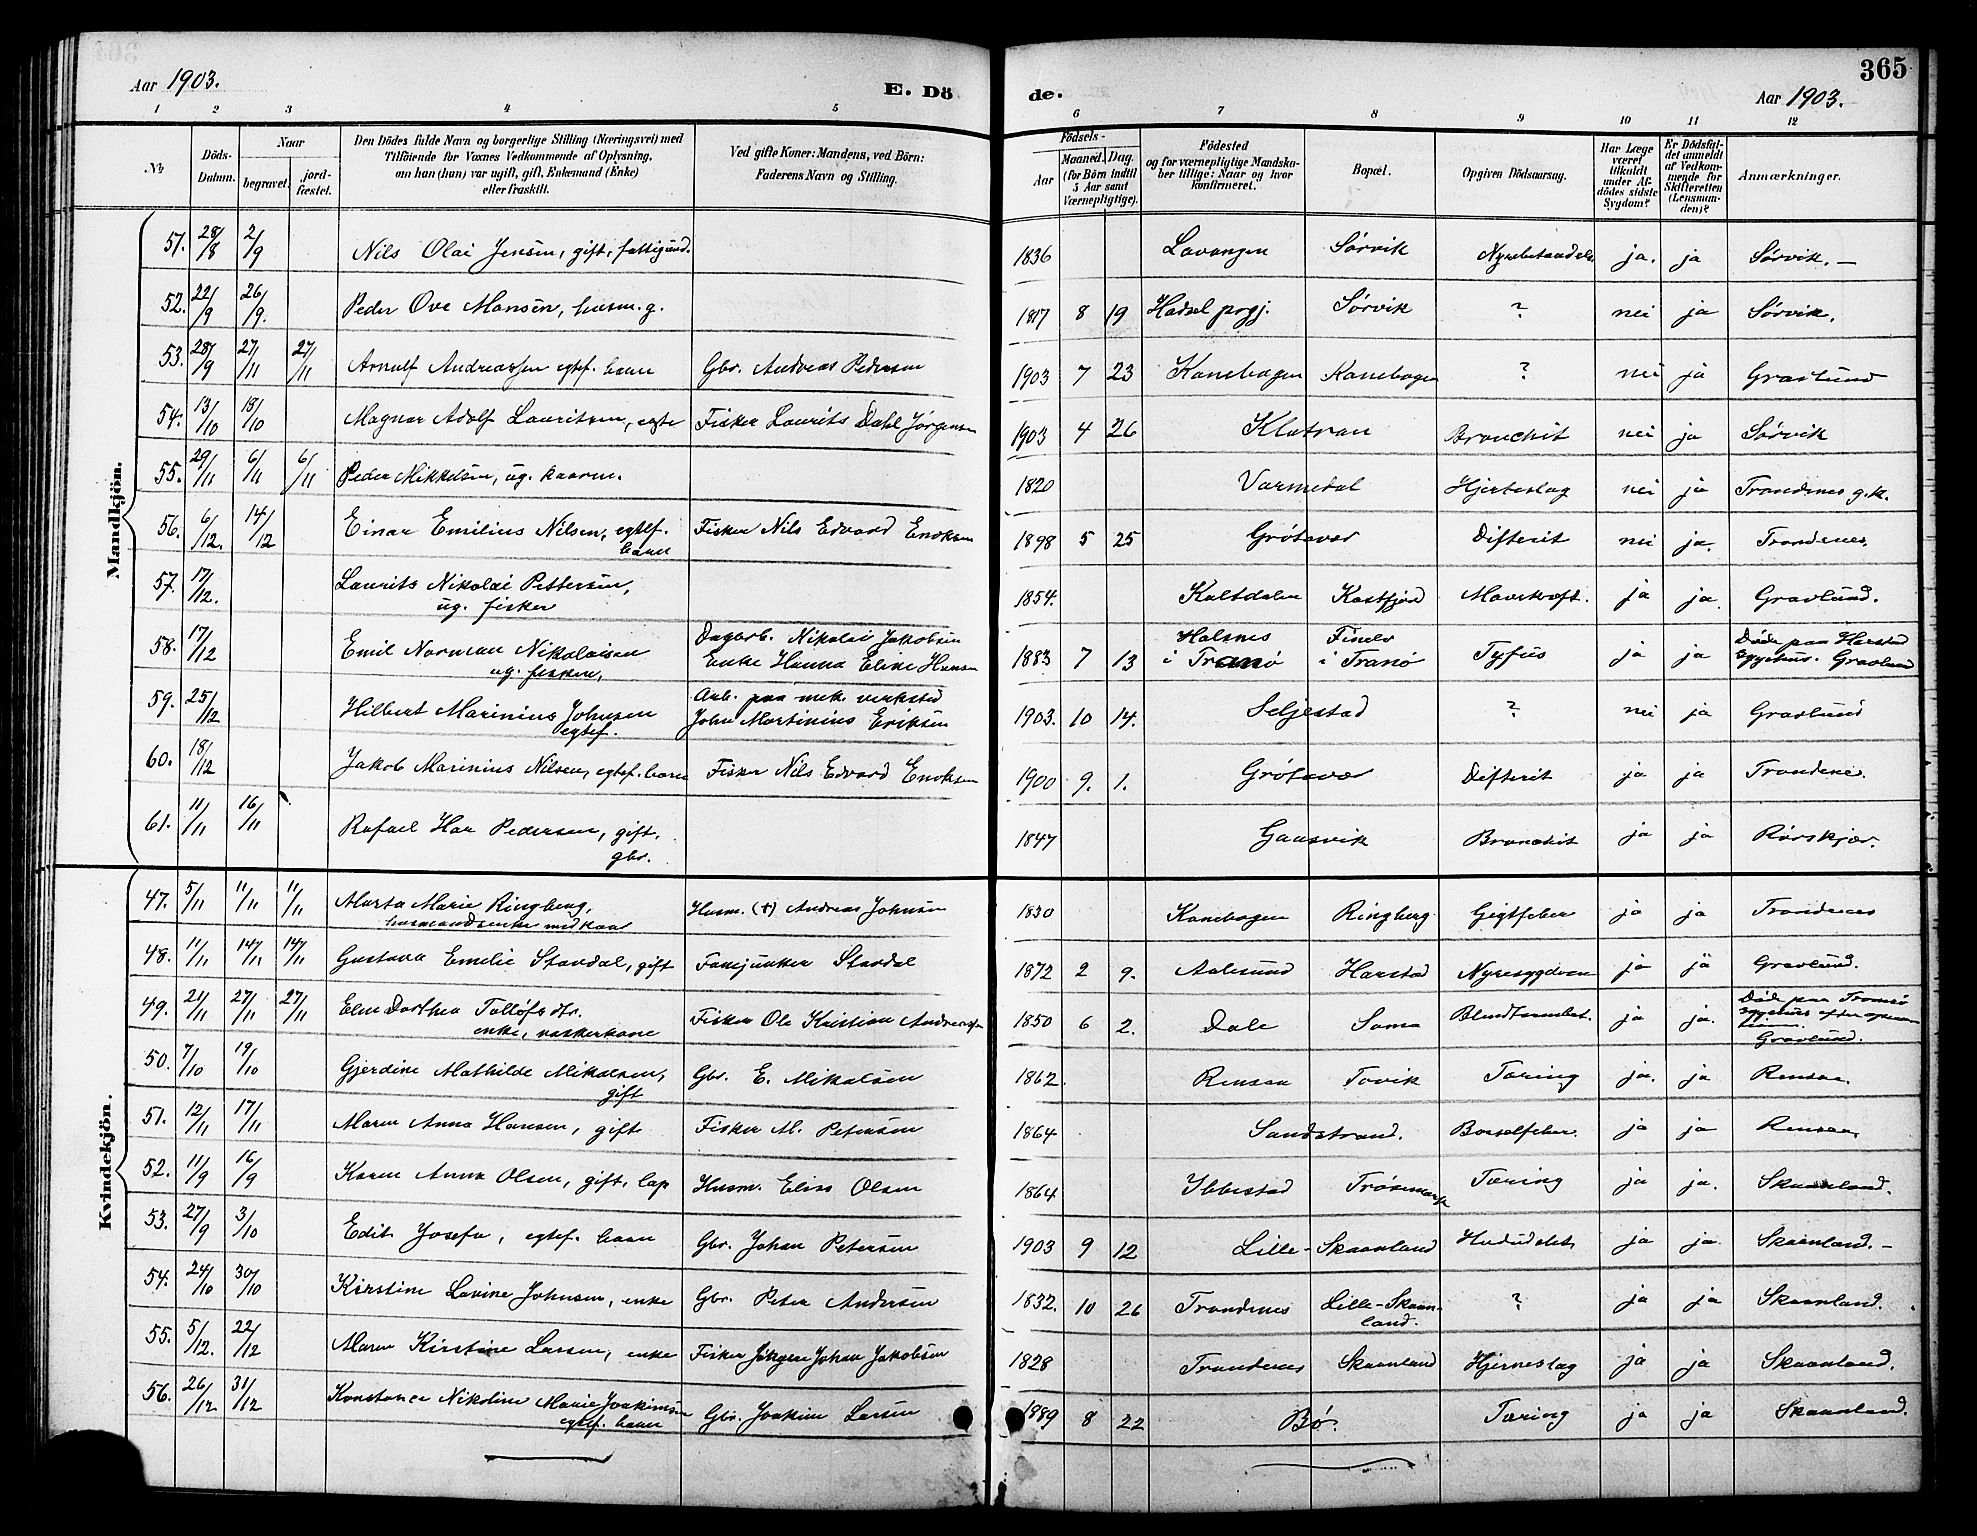 365
Aar 1903. E. Döde. Aar 1903.
1 2 3 4 5 6 7 8 9 10 11 12
No
Döds-Datum.
Naar
begravet.
jord-fæstet.
Den Dödes fulde Navn og borgerlige Stilling (Næringsvei) med
Tilföiende for Voxnes Vedkommende af Oplysning,
om han (hun) var ugift, gift, Enkemand (Enke)
eller fraskilt.
Ved gifte Koner: Mandens, ved Börn:
Faderens Navn og Stilling.
Födsels-
Aar
Maaned. Dag.
(for Börn indtil
5 Aar samt
Værnepligtige).
Födested
og for værnepligtige Mandska-
ber tillige: Naar og hvor
konfirmeret.
Bopæl.
Opgiven Dödsaarsag.
Har Læge
været
tilkaldt
under Af-
dödes sidste
Sygdom?
Er Dödsfal-
det anmeldt
af Vedkom-
mende for
Skifteretten
(Lensman-
den)?
Anmærkninger.
Mandkjön.
51. 28/8 2/9 Nils Olai Jensen, gift, fattigund. 1836 Lavangen Sørvik Nyrebetændelse ja. ja Sørvik. —
52. 22/9 26/9. Peder Ove Hansen, husm. g. 1817 8 19 Hadsel prgj. Sørvik ? nei ja Sørvik.
53. 28/9 27/11 27/11 Arnulf Andreassen egtef. barn Gbr. Andreas Pedersen 1903 7 23 Kanebogen Kanebogen ? nei ja Gravlund
54. 13/10 18/10 Magnar Adolf Lauritsen, egte Fisker Laurits Dahl Jørgensen 1903 4 26 Klatran Bronchit nei ja Sørvik
55. 29/11 6/11 6/11 Peder Mikkelsen, ug. kaarm. 1820 Varmedal Hjerteslag nei ja Trondenes g.k.
56. 6/12. 14/12 Einar Emilius Nilsen, egtef.
barn Fisker Nils Edvard Enoksen 1898 5 25 Grøtavær Difterit nei ja. Trondenes.
57. 17/12. Laurits Nikolai Pettersen,
ug. fisker 1854. Kaltdalen Kastfjord Mavekræft. ja ja. Gravlund.
58. 17/12 Emil Norman Nikolaisen
ug. fisker, Dagarb. Nikolai Jakobsen
Enke Hanna Elise Hansen 1883 7 13 Holsnes
i Tranø i Tranø Tyfus ja ja Døde paa Harstad
sygehus. Gravlund
59. 25/12 Hilbert Marinius Johnsen
egtef. Arb. paa mek. verksted
John Martinius Eriksen 1903. 10 14. Seljestad ? nei ja Gravlund
60. 18/12 Jakob Marinius Nilsen, egtef. barn Fisker Nils Edvard Enoksen 1900 9. 1. Grøtavær Difterit ja ja Trondenes.
61. 11/11 16/11 Rafael Har Pedersen, gift,
gbr. 1847 Gaasvik Bronchit ja ja Rørskjær.
Kvindekjön.
47. 5/11 11/11 11/11 Marta Marie Ringberg,
husmandsenke med kaar Husm. (†) Andreas Johnsen 1830 Kanebogen Ringberg Gigtfeber ja ja Trondenes
48. 11/11 14/11 14/11 Gustava Emelie Stavdal, gift Fanejunker Stavdal 1872 2 9. Aalesund Harstad Nyresygdom ja ja Gravlund.
49. 21/11 27/11 27/11 Elen Dorthea Tolløfsdtr.
enke, vaskerkone Fisker Ole Kristian Andreassen 1850 6 2. Dale Sama Blindtarmbet. ja ja. Døde paa Tromsø
sygehus efter operation.
Gravlund.
50. 7/10 19/10 Gjerdine Mathilde Mikalsen,
gift Gbr. E. Mikalsen 1862. Rensaa Tovik Tæring ja. ja Rensaa.
51. 12/11 17/11 Maren Anna Hansen, gift Fisker M. Petersen 1864 Sandstrand. Barselfeber. ja ja Rensaa.
52. 11/9 16/9 Karen Anna Olsen, gift, lap Husm. Elias Olsen 1864 Ibbestad Trøsemark Tæring ja ja. Skaanland.
53. 27/9 3/10 Edit Josefa, egtef. barn Gbr. Johan Petersen 1903 9 12 Lille-Skaanland ja ja. Skaanland. —
54. 24/10 30/10 Kirstine Lovine Johnsen, enke Gbr. Peter Andersen 1832. 10 26 Trondenes Lille-Skaan-
land. ? ja ja Skaanland.
55. 5/12. 22/12 Maren Kirstine Larsen, enke Fisker Jørgen Johan Jakobsen 1828 Trondenes Skaanland Hjerneslag ja ja Skaanland.
56. 26/12 31/12 Konstance Nikoline Marie Joakimsen
egtef. barn Gbr. Joakim Larsen 1889 8 22 Bø. Tæring ja ja Skaanland.